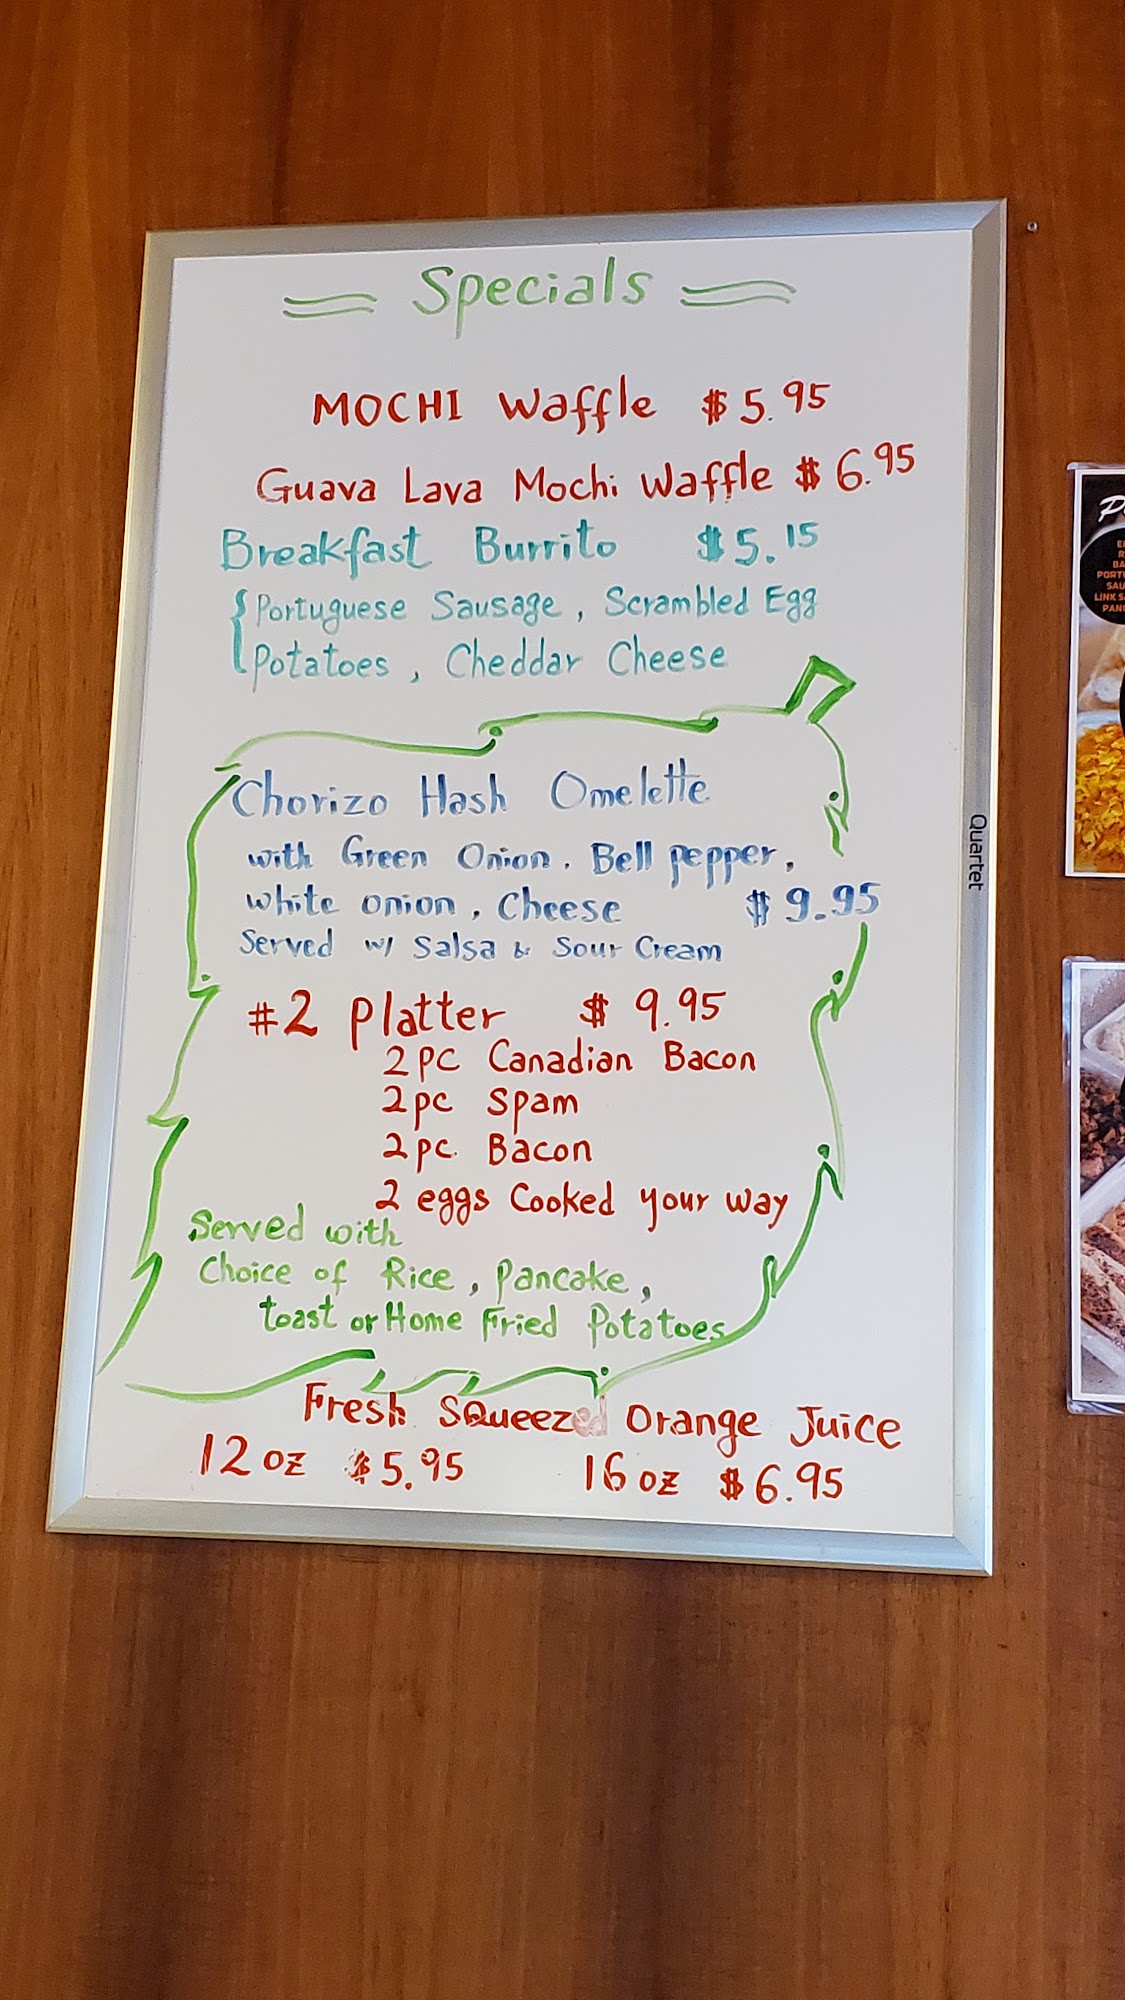 Specials
MOCHI Waffle $5.95
Guava Lava Mochi Waffle $6.95
Breakfast Burrito $5.15
Portuguese Sausage, Scrambled Egg
Potatoes, Cheddar Cheese
Chorizo Hash Omelette
with Green Onion, Bell pepper,
white onion, Cheese $9.95
Served w/ Salsa & Sour Cream
#2 Platter $9.95
2pc Canadian Bacon
2pc Spam
2pc. Bacon
2 eggs Cooked your way
Served with
Choice of Rice, Pancake,
toast or Home Fried Potatoes
Fresh Squeezed Orange Juice
12 oz $5.95 16 oz $6.95
Quartet
LINK